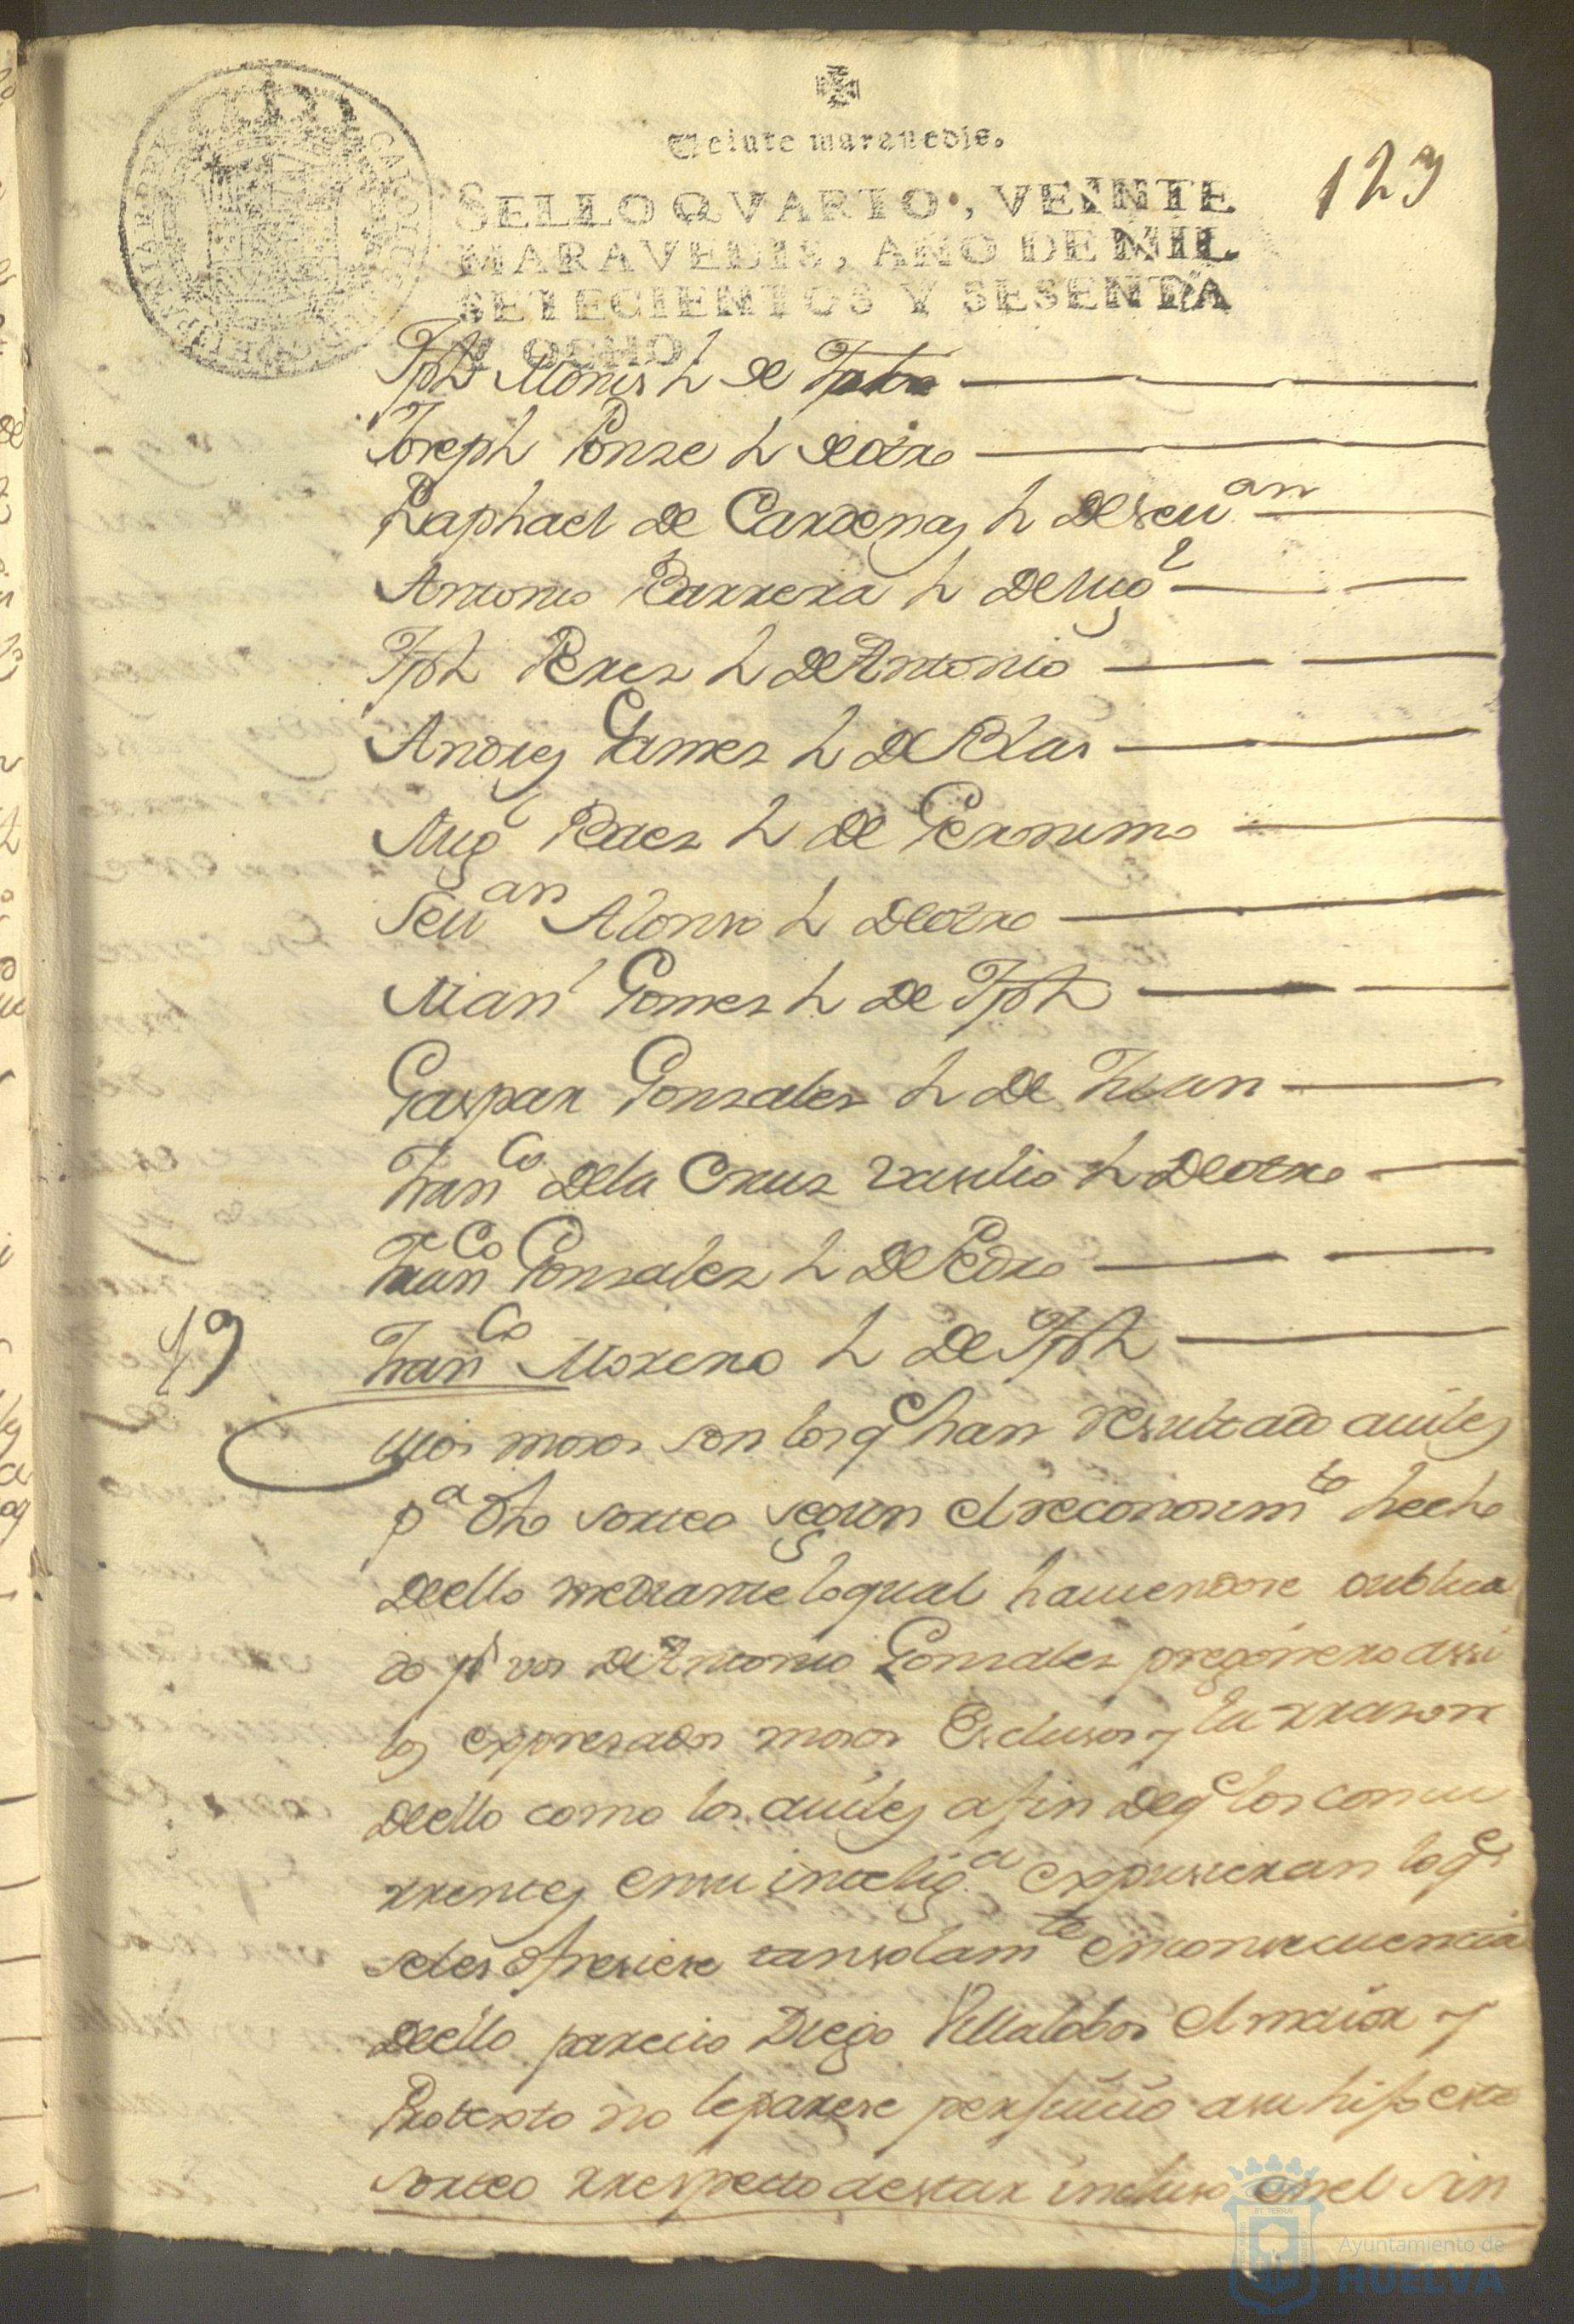 Veinte maravedis.
SELLO QVARTO, VEINTE
MARAVEDIS, AÑO DE MIL
SETECIENTOS Y SESENTA
Y OCHO.
123
Jph Moris h de
Joseph Ponze h de otro
Raphael de Cardenas h de Seu.an
Antonio Barrera h de Migl
Jph Perez h de Antonio
Andres Gamez h de Blas
Migl Baez h de Geronimo
Seuan Alonso h de otro
Manl Gomez h de Jph
Gaspar Gonzalez h de Juan
Franco de la Cruz Vasilio h de otro
Franco Gonzalez h de Pedro
Franco Moreno h de Jph
49
cuios mosos son los qe han resultado auiles
pa dho sorteo segun el reconosimto hecho
de ello mediante lo qual hauiendose publica
do pr vos de Antonio Gonzalez pregonero assi
los expresados mosos Esclusos y la rrason
de ello como los auiles a fin de qe los concu
rrentes en su inteliga expusieran lo qe
se les ofresiese tan solamte en consecuencia
de ello parecio Diego Villalobos el maior y
Protexto no le parese perjuicio a su hijo este
sorteo rrespecto de estar incluso en el sin
Ayuntamiento de
HUELVA